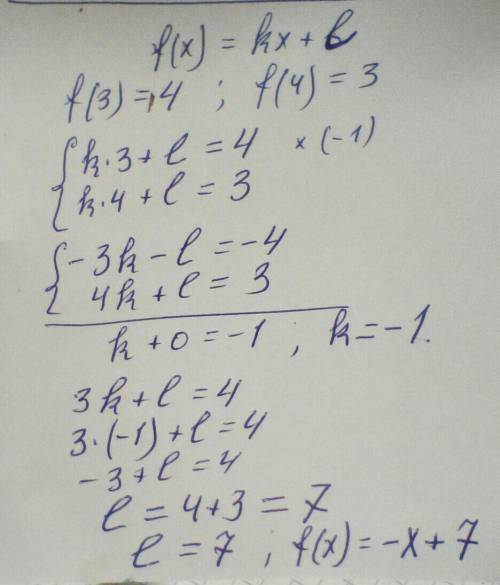 f(x) = kx + l
f(3) = 4 ; f(4) = 3
{ k·3 + l = 4 × (-1)
k·4 + l = 3
{ -3k - l = -4
4k + l = 3
k + 0 = -1 ; k = -1.
3k + l = 4
3·(-1) + l = 4
-3 + l = 4
l = 4 + 3 = 7
l = 7 , f(x) = -x + 7